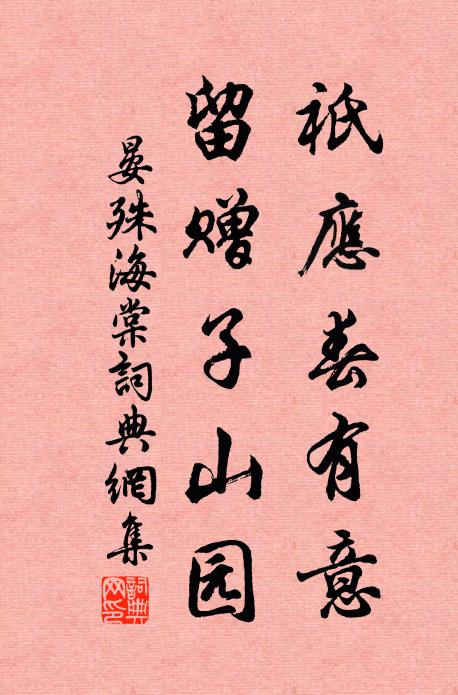 祇應春有意
留赠子山园
晏殊海棠詞典網集
詞典網印